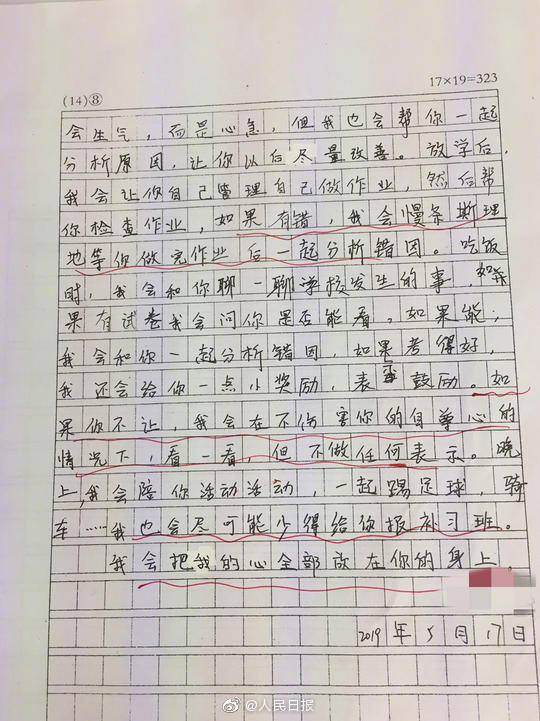 17×19=323
(14)⑧
会生气，而是心急，但我也会帮你一起
分析原因，让你以后尽量改善。放学后，
我会让你自己管理自己做作业，然后帮
你检查作业，如果有错，我会慢条斯理
地等你做完作业后一起分析错因。吃饭
时，我会和你聊一聊学校发生的事，如
果有试卷我会问你是否能看。如果能，
我会和你一起分析错因，如果考得好，
我还会给你一点小奖励，表示鼓励。如
果你不让，我会在不伤害你的自尊心的
情况下，看一看，但不做任何表示。晚
上，我会陪你活动活动，一起踢足球，骑
车……我也会尽可能少得给你报补习班。
我会把我的心全部放在你的身上。
2019年5月17日
@人民日报